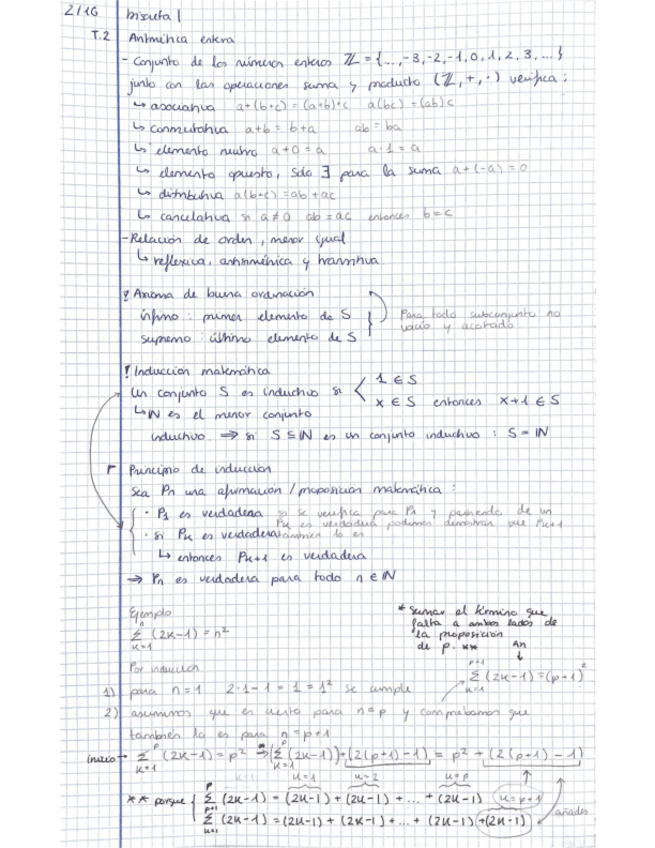 2/16 Discreta 1
T.2 Aritmética entera
- Conjunto de los números enteros ℤ = {..., -3, -2, -1, 0, 1, 2, 3, ...}
junto con las operaciones suma y producto (ℤ, +, ·) verifica :
↳ asociativa a+(b+c) = (a+b)+c a(bc) = (ab)c
↳ conmutativa a+b = b+a ab = ba
↳ elemento neutro a+0 = a a·1 = a
↳ elemento opuesto, solo ∃ para la suma a+(-a) = 0
↳ distributiva a(b+c) = ab + ac
↳ cancelativa si a≠0 ab = ac entonces b = c
- Relación de orden, menor igual
↳ reflexiva, antisimétrica y transitiva
! Axioma de buena ordinación
ínfimo : primer elemento de S
supremo : último elemento de S
} Para todo subconjunto no
vacío y acotado
! Inducción matemática
Un conjunto S es inductivo si { 1 ∈ S
x ∈ S entonces x+1 ∈ S
↳ ℕ es el menor conjunto
inductivo ⇒ si S ⊆ ℕ es un conjunto inductivo : S = ℕ
Principio de inducción
Sea Pn una afirmación / proposición matemática :
· P1 es verdadera si se verifica para P1 y partiendo de un
Pk es verdadera podemos demostrar que Pk+1
· si Pk es verdadera también lo es
↳ entonces Pk+1 es verdadera
⇒ Pn es verdadera para todo n ∈ ℕ
Ejemplo
n Σ k=1 (2k-1) = n²
* Sumar el término que
falta a ambos lados de
la proposición
de p. **
An
↓
p+1 Σ k=1 (2k-1) = (p+1)²
Por inducción
1) para n=1 2·1-1 = 1 = 1² se cumple
2) asumimos que es cierto para n=p y comprobamos que
también lo es para n = p+1
inicio → p Σ k=1 (2k-1) = p² ⇒ (p Σ k=1 (2k-1)) + (2(p+1)-1) = p² + (2(p+1)-1)
k=1 k=2 k=p
** porque { p Σ (2k-1) = (2k-1) + (2k-1) + ... + (2k-1) k=p+1
Σ k=1 (2k-1) = (2k-1) + (2k-1) + ... + (2k-1) + (2k-1)
añades